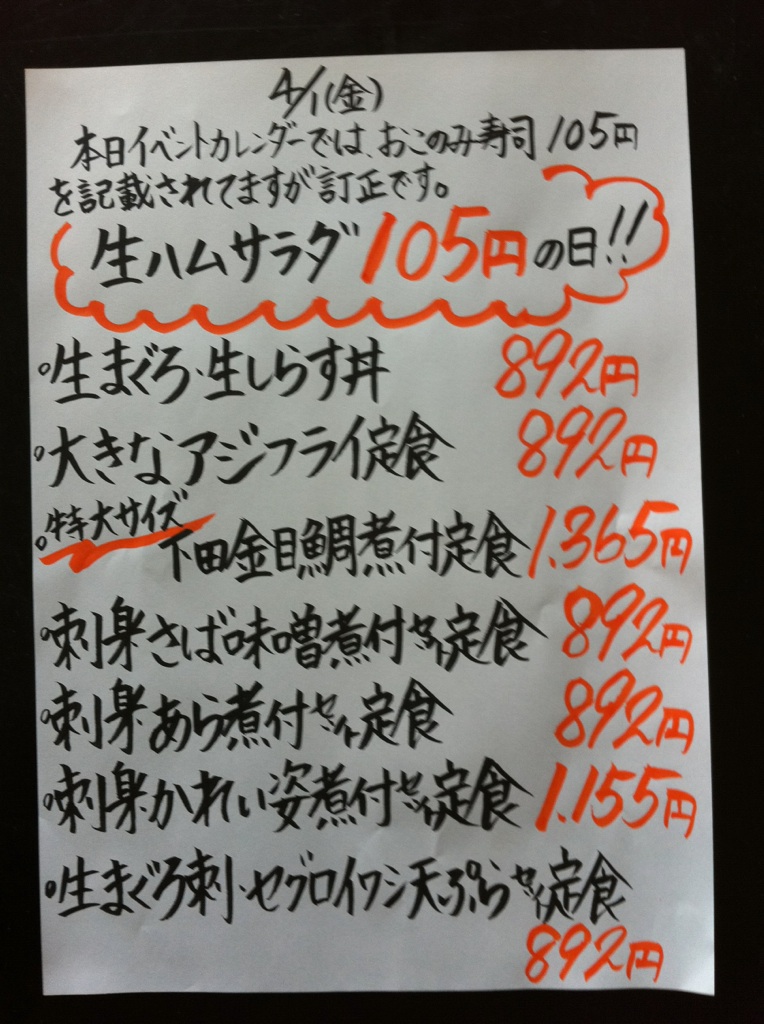 4/1(金)
本日イベントカレンダーでは、おこのみ寿司105円
を記載されてますが訂正です。
生ハムサラダ105円の日!!
。生まぐろ・生しらす丼 892円
。大きなアジフライ定食 892円
。特大サイズ
下田金目鯛煮付定食 1.365円
。刺身さば味噌煮付セット定食 892円
。刺身あら煮付セット定食 892円
。刺身かれい姿煮付セット定食 1.155円
。生まぐろ刺・セグロイワシ天ぷらセット定食
892円